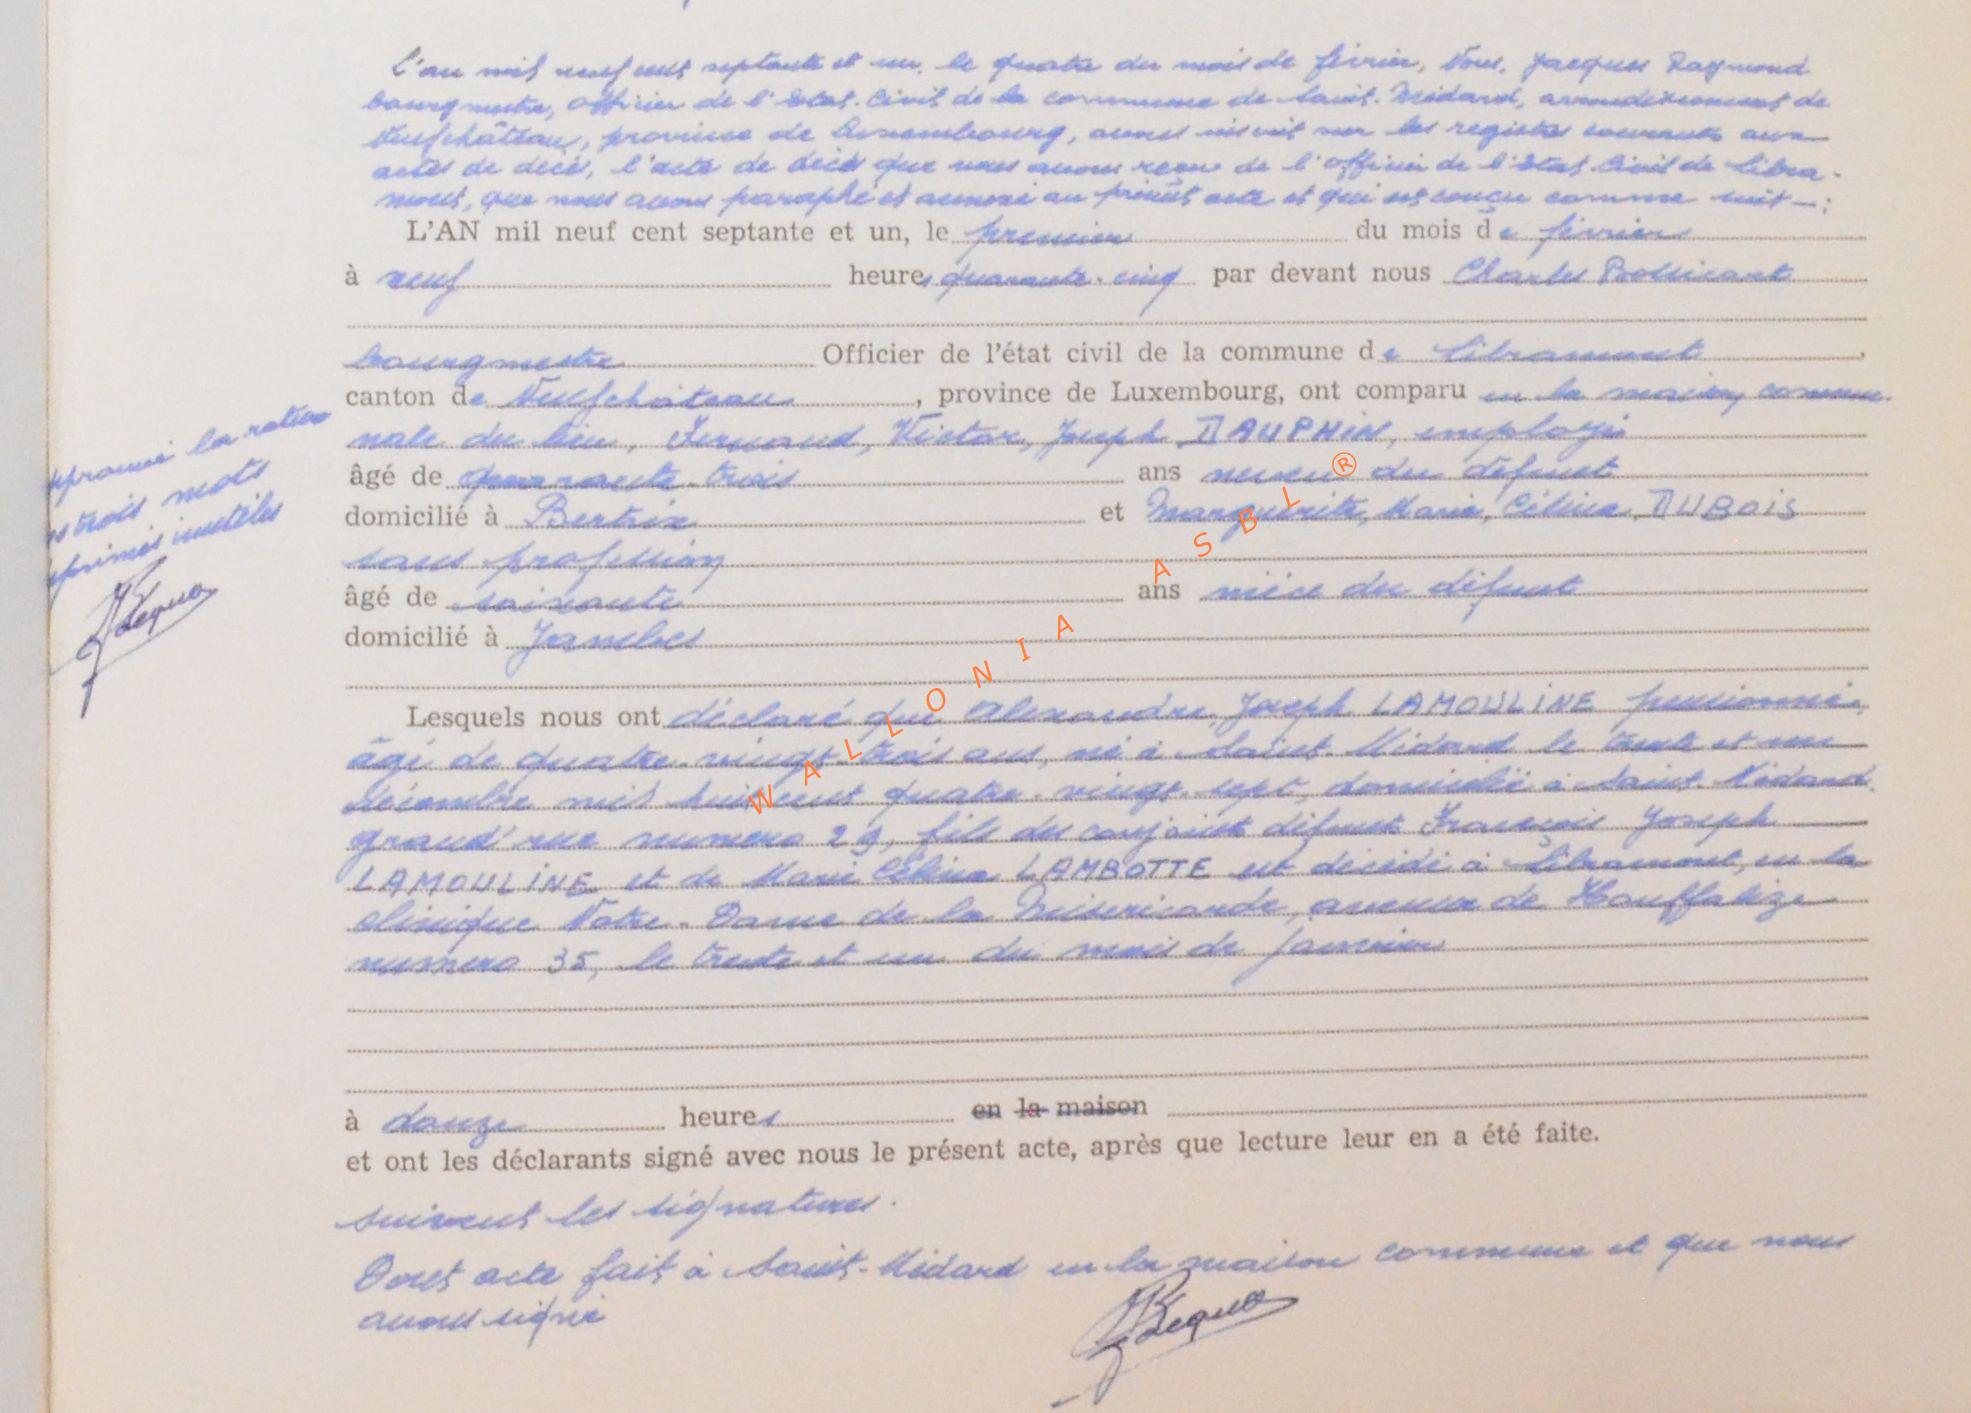 L'an mil neuf cent septante et un, le quatre du mois de février, Nous, Jacques Raymond
bourgmestre, officier de l'Etat-Civil de la commune de Saint-Médard, arrondissement de
Neufchâteau, province de Luxembourg, avons inscrit sur les registres courants aux
actes de décès, l'acte de décès que nous avons reçu de l'officier de l'Etat Civil de Libra-
mont, que nous avons paraphé et annexé au présent acte et qui est conçu comme suit —:
L'AN mil neuf cent septante et un, le premier du mois de février
à neuf heures quarante-cinq par devant nous Charles
bourgmestre Officier de l'état civil de la commune de Libramont,
canton de Neufchâteau, province de Luxembourg, ont comparu en la maison commu-
nale du lieu, Fernand, Victor, Joseph DAUPHIN, employé
âgé de quarante-trois ans neveu du défunt
domicilié à Bertrix et Marguerite, Marie, Célina DUBOIS
sans profession
âgé de soixante ans nièce du défunt
domicilié à Jambes
Lesquels nous ont déclaré que Alexandre, Joseph LAMOULINE pensionné,
âgé de quatre-vingt-trois ans, né à Saint-Médard le trente et un
décembre mil huit cent quatre-vingt-sept, domicilié à Saint-Médard,
grand'rue numéro 29, fils des conjoints défunts François Joseph
LAMOULINE et de Marie Célina LAMBOTTE est décédé à Libramont, en la
clinique Notre-Dame de la Miséricorde, avenue de Houffalize
numéro 35, le trente et un du mois de janvier
à douze heures en la maison
et ont les déclarants signé avec nous le présent acte, après que lecture leur en a été faite.
suivent les signatures.
Dont acte fait à Saint-Médard en la maison commune et que nous
avons signé
approuvé la rature
des trois mots
imprimés inutiles
WALLONIA ASBL ®